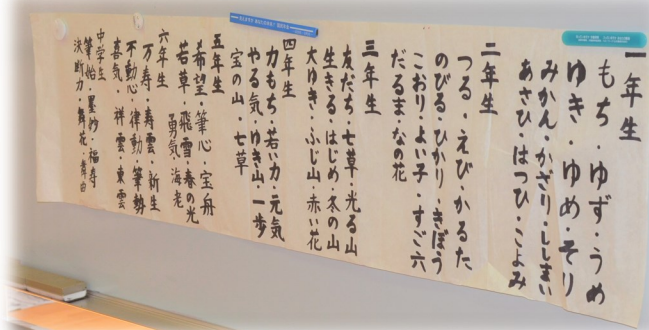 一年生
もち・ゆず・うめ
ゆき・ゆめ・そり
みかん・かざり・ししまい
あさひ・はつひ・こよみ
二年生
つる・えび・かるた
のびる・ひかり・きぼう
こおり・よい子・すご六
だるま・なの花
三年生
友だち・七草・光る山
生きる・はじめ・冬の山
大ゆき・ふじ山・赤い花
四年生
力もち・若い力・元気
やる気・ゆき山・一歩
宝の山・七草
五年生
希望・筆心・宝舟
若草・飛雪・春の光
勇気・海老
六年生
万寿・寿雲・新生
不動心・律動・筆勢
喜気・祥雲・東雲
中学生
筆始・墨妙・福寿
決断力・舞花・